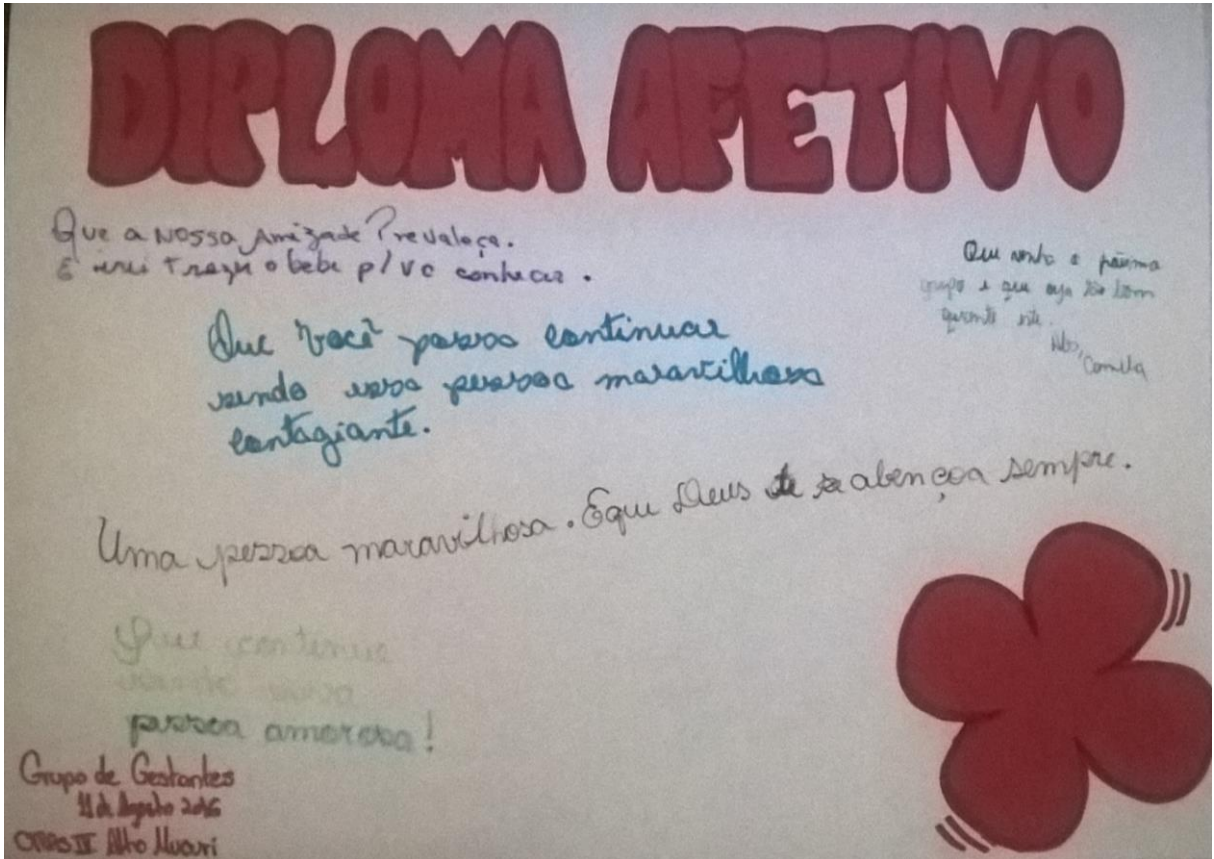 DIPLOMA AFETIVO
Que a Nossa Amizade Prevaleça.
E irei Trazer o bebe p/ vc conhecer.
Que venha o próximo
grupo e que seja tão bom
quanto este.
Abs,
Camila
Que você possa continuar
sendo essa pessoa maravilhosa
contagiante.
Uma pessoa maravilhosa. E que Deus te abençoa sempre.
Que continue
sendo essa
pessoa amorosa!
Grupo de Gestantes
11 de Agosto 2016
II Alto